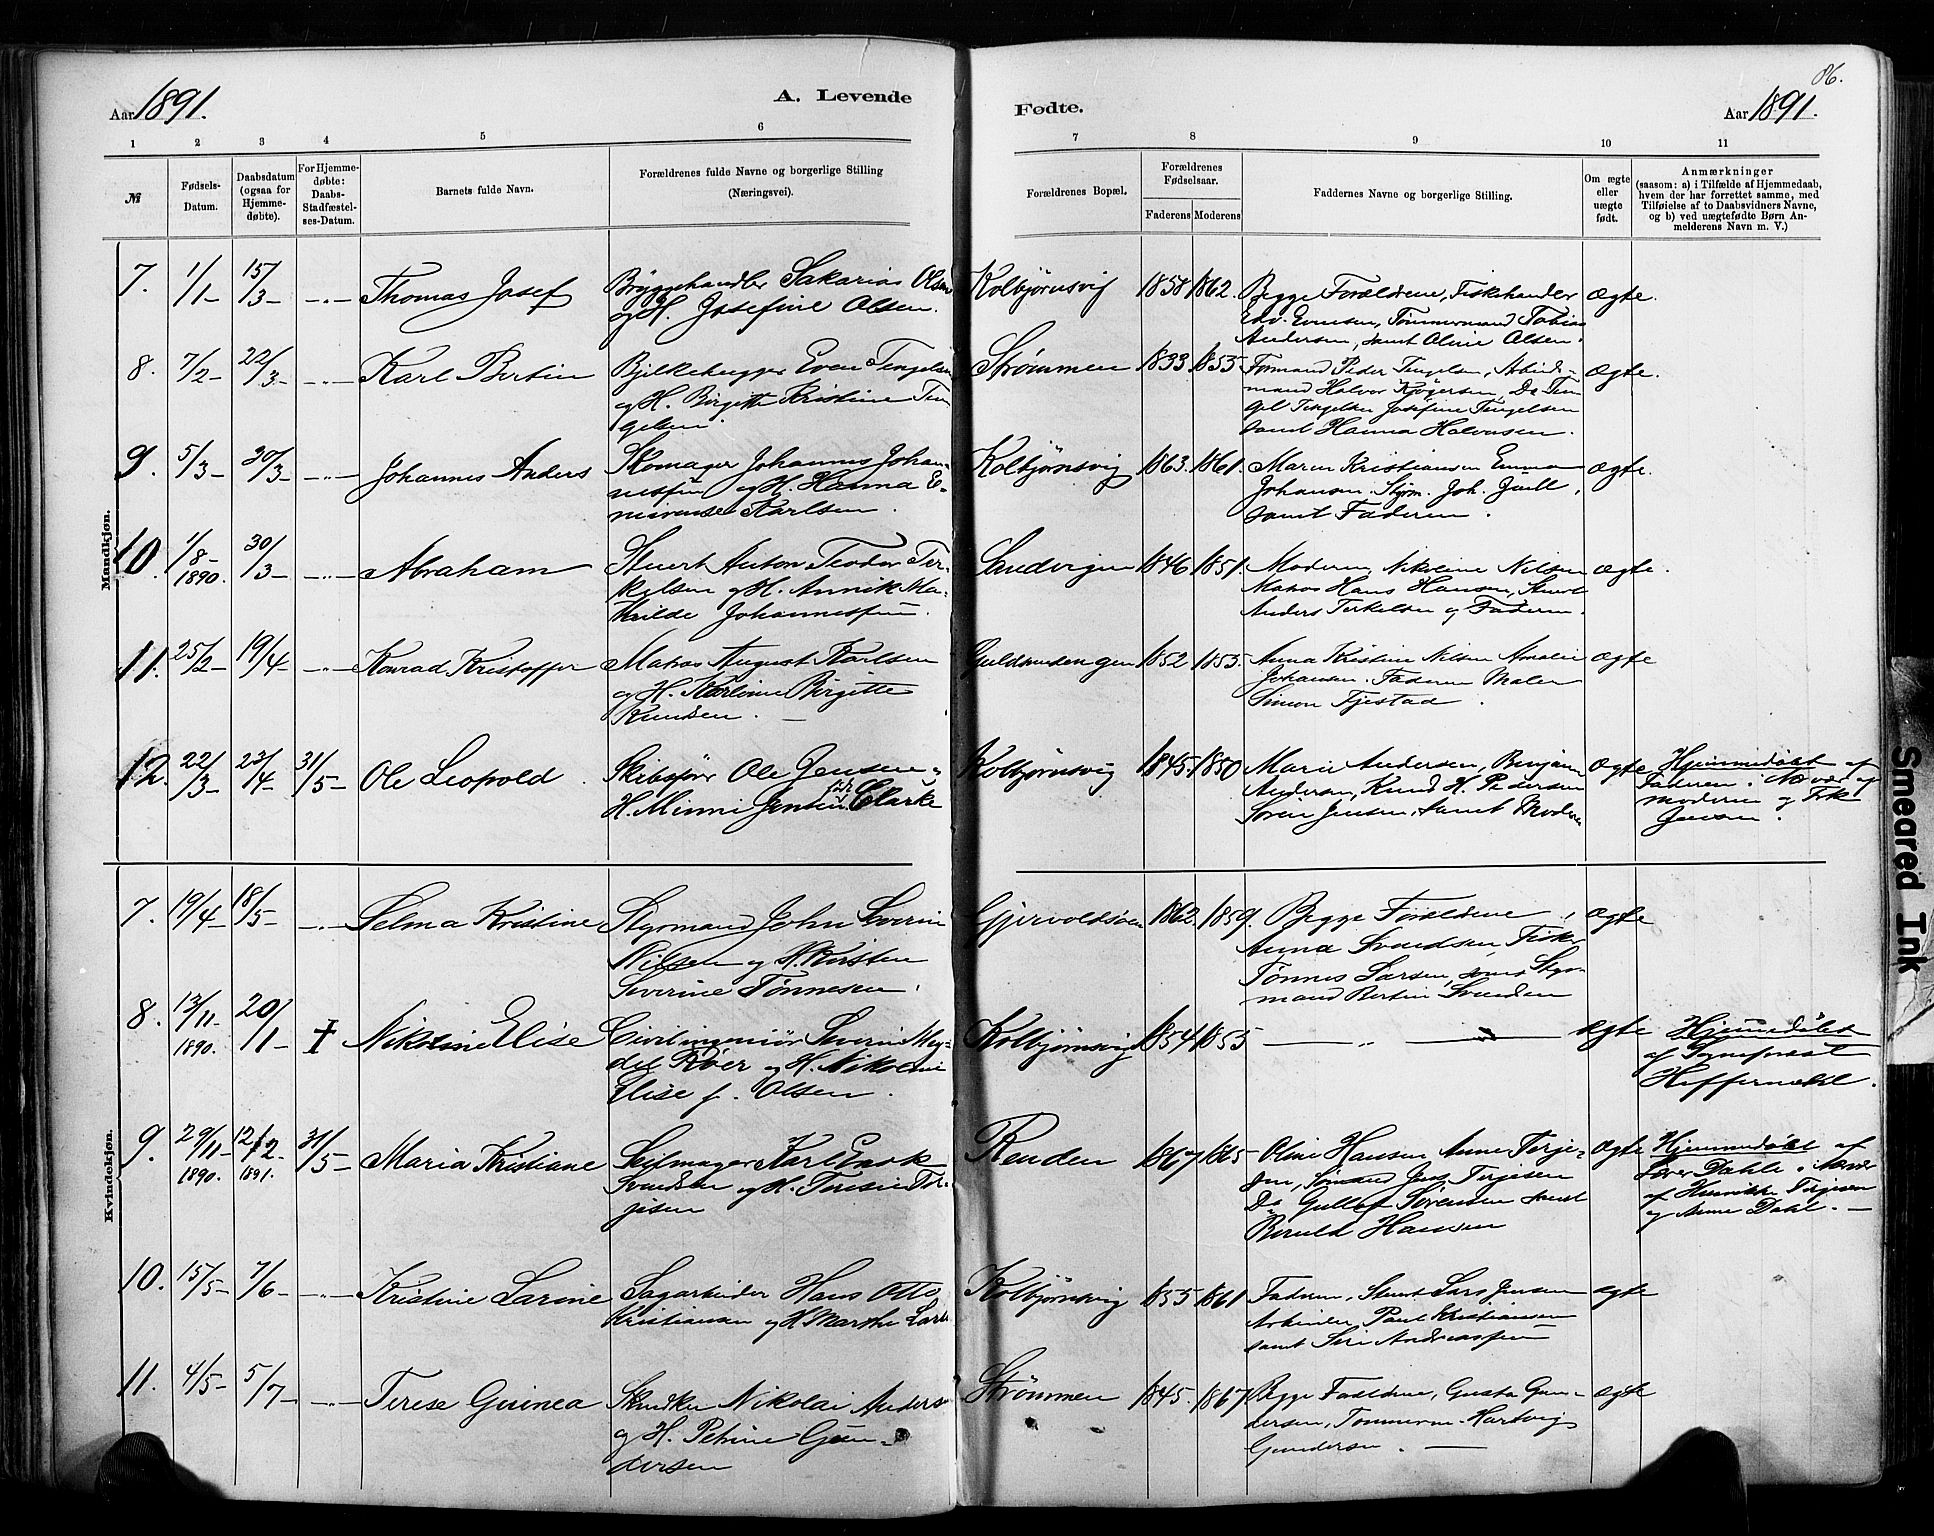 86.
Aar 1891. A. Levende Fødte. Aar 1891.
1 2 3 4 5 6 7 8 9 10 11
№ Fødsels-Datum. Daabsdatum (ogsaa for Hjemme-døbte). For Hjemme-døbte: Daabs-Stadfæstel-ses-Datum. Barnets fulde Navn. Forældrenes fulde Navne og borgerlige Stilling (Næringsvei). Forældrenes Bopæl. Forældrenes Fødselsaar. Faderens Moderens Faddernes Navne og borgerlige Stilling. Om ægte eller uægte født. Anmærkninger (saasom: a) i Tilfælde af Hjemmedaab, hvem der har forrettet samme, med Tilføielse af to Daabsvidners Navne, og b) ved uægtefødte Børn An-melderens Navn m. V.)
Mandkjøn.
7. 1/1- 15/3- -"- Thomas Josef Bryggehandler Sakarias Olsen Kolbjørnsvig 1858 1862. Begge Forældrene, Fiskehandler ægte.
og H. Josefine Olsen. Edv. Evensen, Tømmermand Tobias
Andersen, samt Oline Olsen.
8. 7/2- 22/3- -"- Karl Bertin Bjelkehugger Even Tengelsen Strømmen 1833. 1853 Formand Peder Tengelsen, Arbeids- ægte.
og H. Birgitte Kristine Ten mand Halvor Kjøgersen, Do Ten
gelsen. gel Tengelsen Josefine Tengelsen
samt Hanna Halvorsen.
9. 5/3- 30/3- -"- Johannes Anders Skomager Johannes Johan- Kolbjørnsvig 1863. 1861. Maren Kristiansen Emma ægte.
nesen og H. Hanna E- Johansen. Styrm. Joh. Juell,
merense Karlsen. samt Faderen.
10. 1/8- 1890. 30/3- -"- Abraham Stuert Anton Teodor Ter- Sandvigen 1846 1851. Moderen, Nikoline Nilsen ægte.
kelsen og H. Annik Ma- Matros Hans Hansen, Stuert
thilde Johannesen. Anders Terkelsen og Faderen.
11. 25/2- 19/4- -"- Konrad Kristoffer Matros August Karlsen Guldsmedengen 1852. 1853. Anna Kristine Nilsen Amalie ægte
og H. Karline Birgitte Johansen. Faderen Maler
Knudsen. Simon Fjestad.
12. 22/3- 23/4- 31/5- Ole Leopold. Skibsfører Ole Jensen og Kolbjørnsvig 1845. 1850. Marie Andersen, Benjamin ægte Hjemmedøbt af
H. Minni Jensen f. Clarke Andersen, Knud H. Pedersen Faderen i Nærvær af
Søren Jensen, samt Moderen moderen og
Jensen.
Kvindekjøn.
7. 19/4- 18/5- -"- Selma Kristine Styrmand John Severin Gjervoldsøen 1862. 1859. Begge Forældrene, ægte
Nilsen og H. Kirsten Anna Svendsen Fisk.
Severine Tønnesen. Tønnes Larsen, samt Styr-
mand Bertin Svendsen
8. 13/11- 1890. 20/11- ‡ Nikoline Elise Civilingeniør Severin Kolbjørnsvig 1854 1855 — " — ægte Hjemmedøbt
Röer og H. Nikoline af Sogneprest
Elise f. Olsen. Heffermehl.
9. 29/11- 1890. 12/2- 1891. 31/5- Maria Kristiane Seilmager Karl Enok Renden 1867 1865- Oline Hansen Anne Terje- ægte Hjemmedøbt af
Svendsen og H. Teresie Ter- sen, Sømand Jens Terjesen Lærer Dahle i Nærvær
jesen Do Gullof Sørensen samt af Henrikke Terjesen
Beruld Hansen og Anne Dahl.—
10. 15/5- 7/6- -"- Kristine Larine Sagarbeider Hans Otto Kolbjørnsvig 1855 1861 Faderen, Stuert Lars Jensen ægte
Kristiansen og H. Marthe Lars Arbeider, Paul Kristiansen
samt Siri Andreassen
11. 4/5- 5/7- -"- Terese Guinea Snedker Nikolai Anders Strømmen 1845. 1867 Begge Forældrene, Gusta Gun- ægte
og H. Petrine Gun- dersen, Tømmerm. Hartvig
dersen Gundersen.—
Smeared Ink